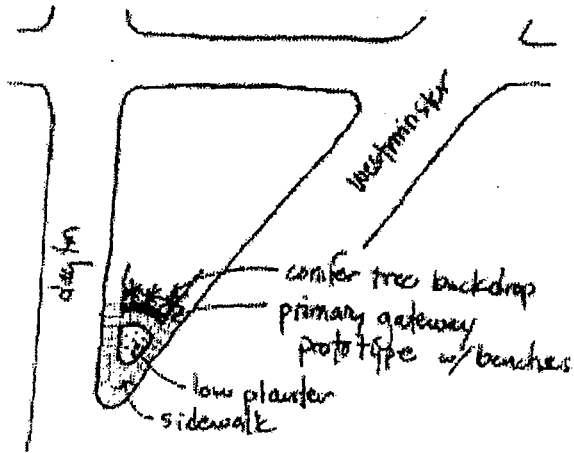 westminster
dayton
conifer tree backdrop
primary gateway
prototype w/benches
low planter
sidewalk